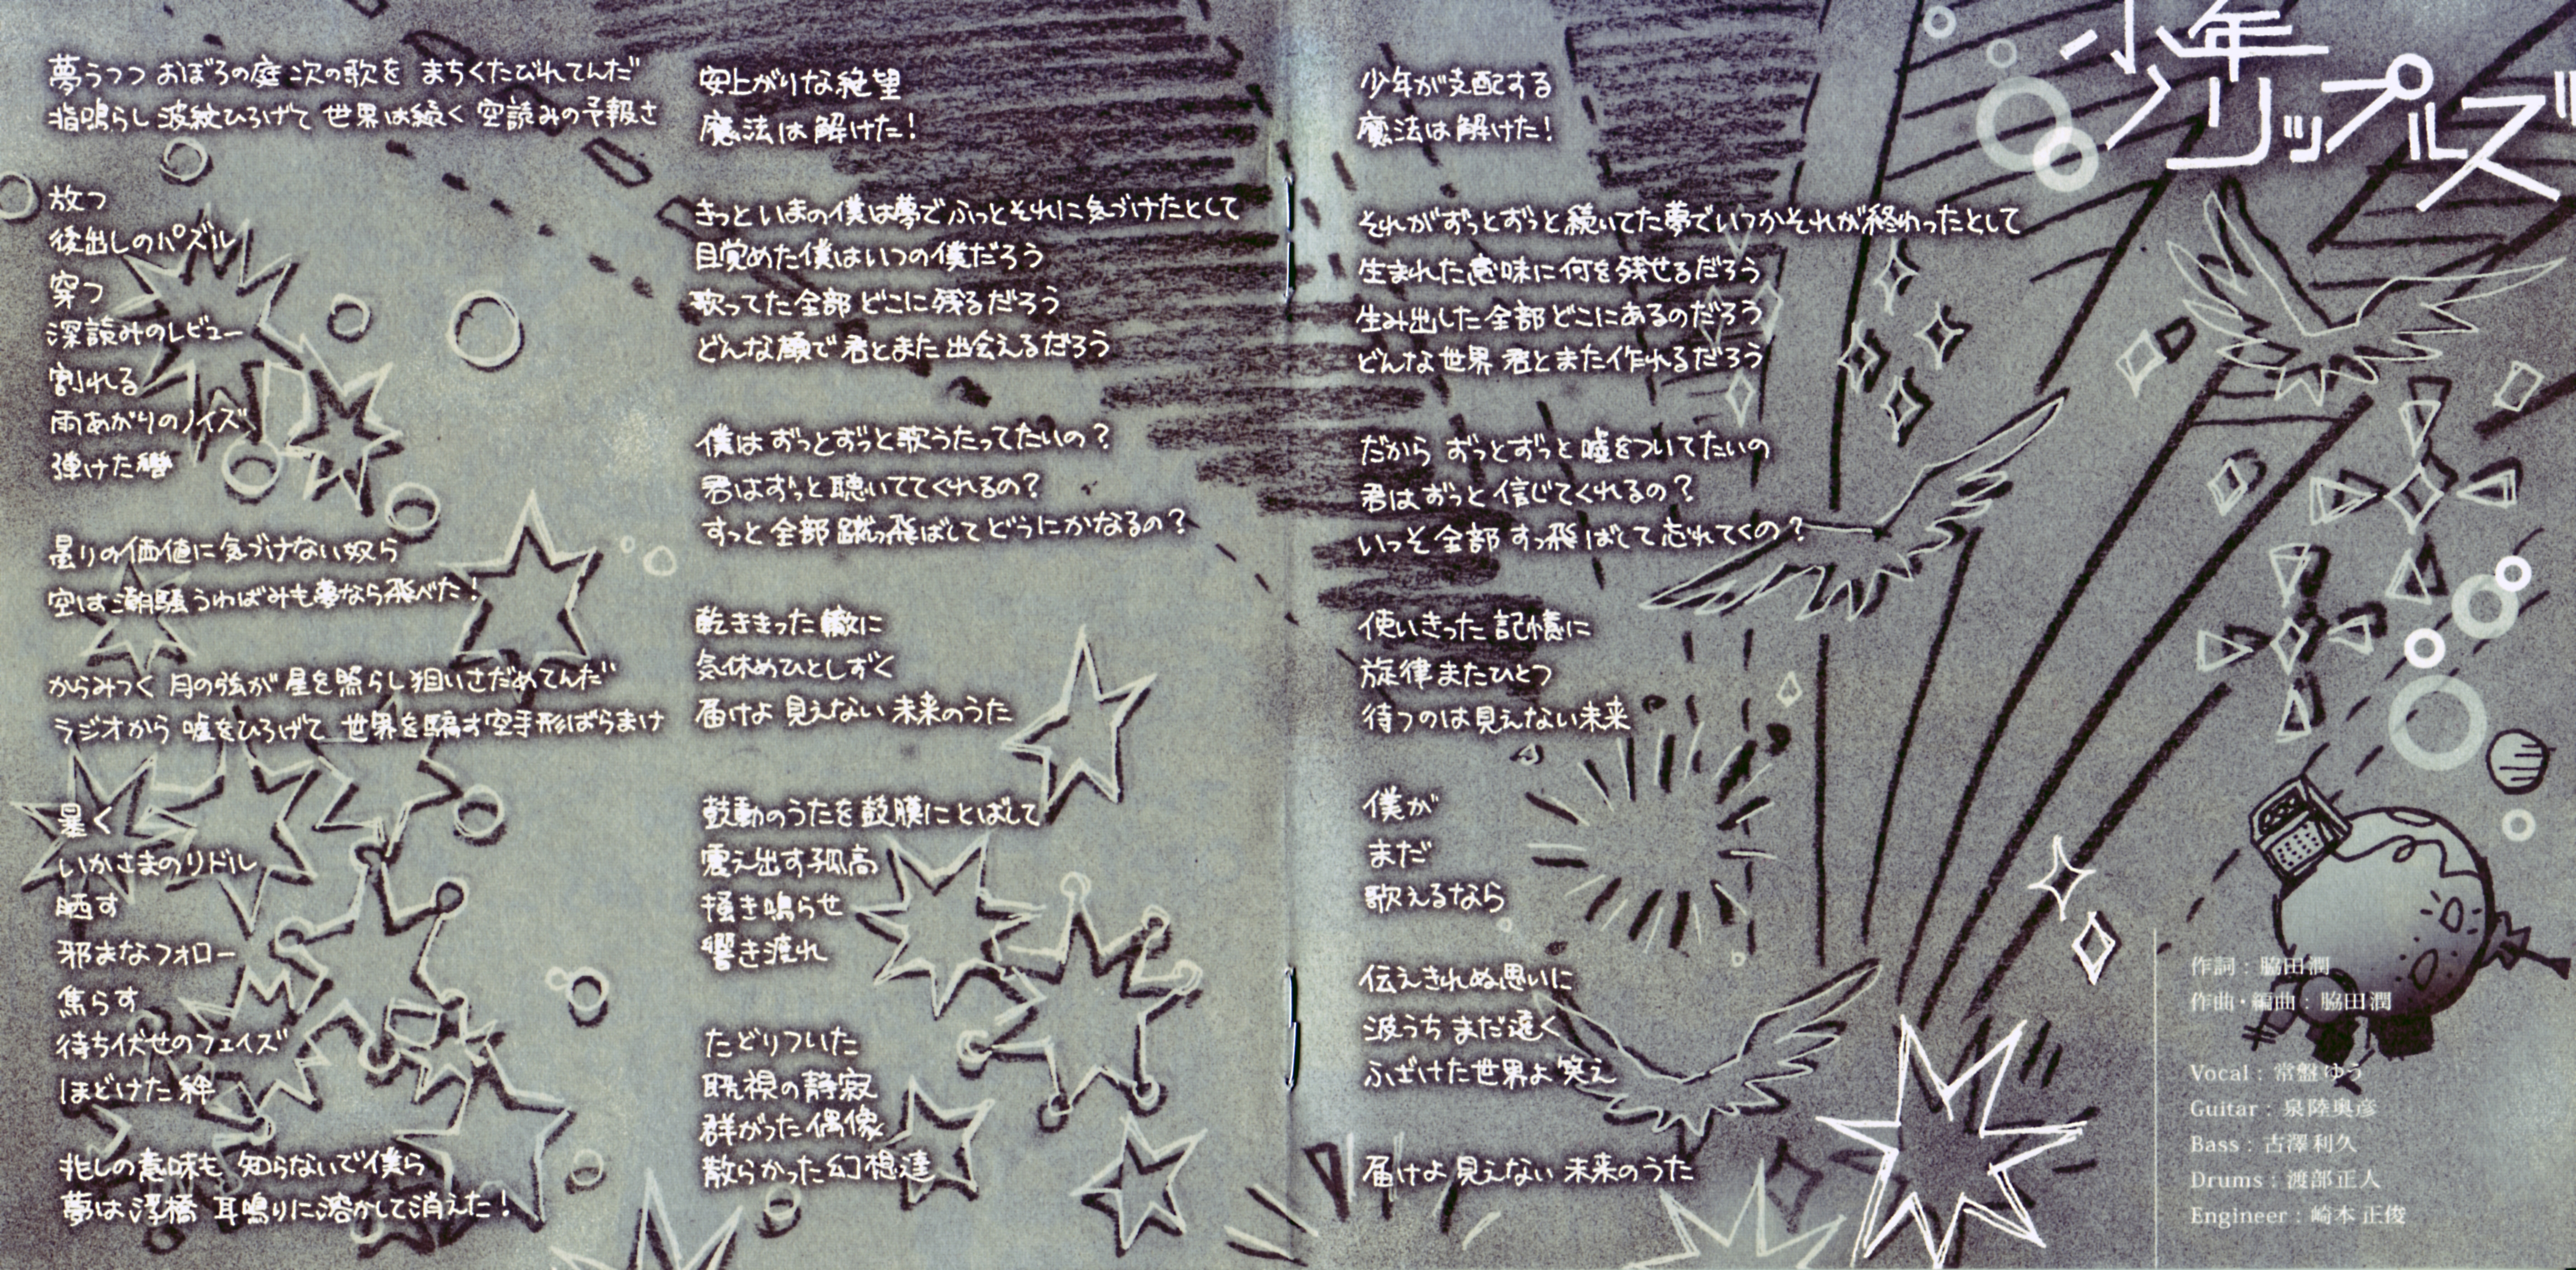 少年リップルズ
夢うつつ おぼろの庭 次の歌を まちくたびれてんだ
指鳴らし 波紋ひろげて 世界は続く 空読みの予報さ
放つ
後出しのパズル
穿つ
深読みのレビュー
割れる
雨あがりのノイズ
弾けた轡
曇りの価値に気づけない奴ら
空は潮騒 うわばみも夢なら飛べた!
からみつく 月の弦が 星を照らし 狙いさだめてんだ
ラジオから 嘘をひろげて 世界を騙す空手形ばらまけ
暴く
いかさまのリドル
晒す
邪まなフォロー
焦らす
待ち伏せのフェイズ
ほどけた絆
兆しの意味も 知らないで僕ら
夢は浮橋 耳鳴りに溶かして消えた!
安上がりな絶望
魔法は解けた!
きっといまの僕は夢でふっとそれに気づけたとして
目覚めた僕はいつの僕だろう
歌ってた全部 どこに残るだろう
どんな顔で 君とまた 出会えるだろう
僕は ずっとずっと歌うたってたいの?
君はずっと 聴いててくれるの?
すっと 全部 蹴っ飛ばして どうにかなるの?
乾ききった 轍に
気休めひとしずく
届けよ 見えない 未来のうた
鼓動のうたを 鼓膜にとばして
震え出す孤高
掻き鳴らせ
響き渡れ
たどりついた
既視の静寂
群がった 偶像
散らかった 幻想達
少年が支配する
魔法は 解けた!
それがずっとずっと続いてた夢でいつかそれが終わったとして
生まれた意味に何を残せるだろう
生み出した全部 どこにあるのだろう
どんな世界 君とまた作れるだろう
だから ずっとずっと 嘘をついてたいの
君は ずっと 信じてくれるの?
いっそ 全部 すっ飛ばして 忘れてくの?
使いきった 記憶に
旋律 またひとつ
待つのは見えない未来
僕が
まだ
歌えるなら
伝えきれぬ思いに
波うち まだ遠く
ふざけた世界よ 笑え
届けよ 見えない 未来のうた
作詞 : 脇田潤
作曲・編曲 : 脇田潤
Vocal : 常盤ゆう
Guitar : 泉陸奥彦
Bass : 古澤利久
Drums : 渡部正人
Engineer : 崎本 正俊